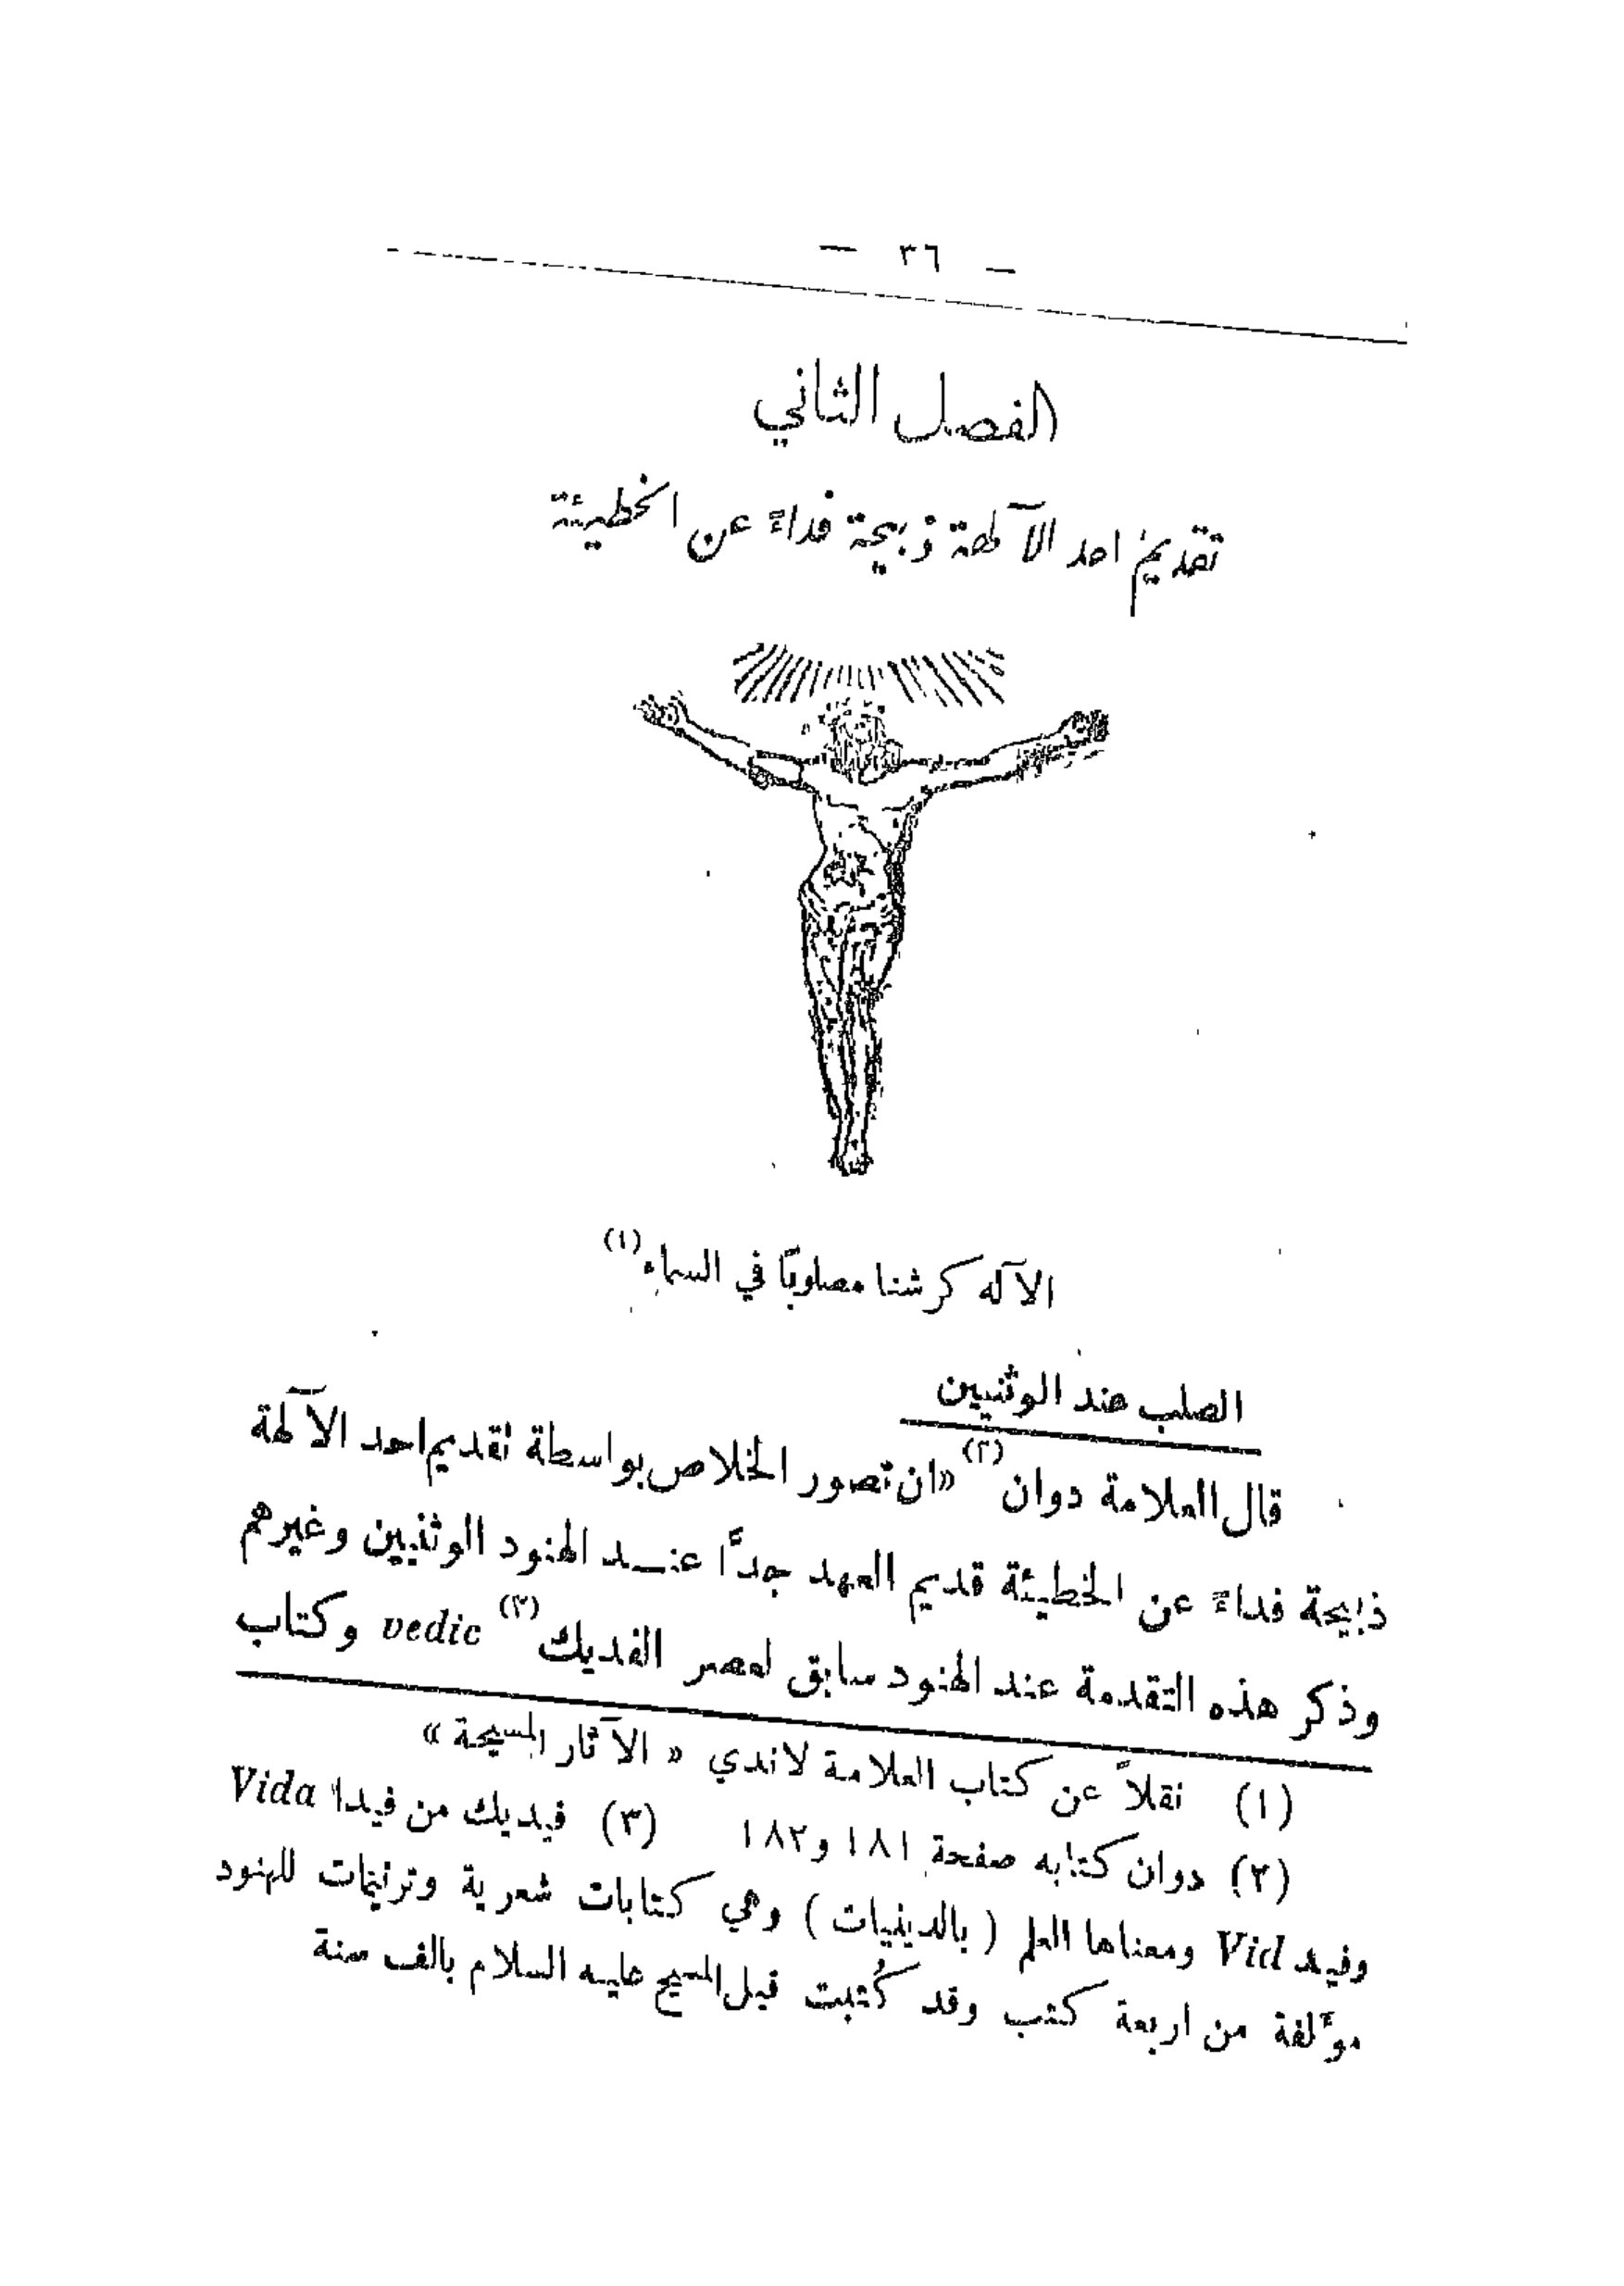 — ٣٦ —
الفصل الثاني
تقديم احد الآلهة ذبيحة فداءً عن الخطيئة
الآله كرشنا مصلوبًا في السماء (١)
الصلب عند الوثنيين
قال العلامة دوان (٢) «ان تصور الخلاص بواسطة تقديم احد الآلهة
ذبيحة فداءً عن الخطيئة قديم العهد جدًّا عنـــد الهنود الوثنيين وغيرهم
وذكر هذه التقدمة عند الهنود سابق لعصر الفديك (٣) vedic وكتاب
(١) نقلاً عن كتاب العلامة لاندي « الآثار المسيحة »
(٢) دوان كتابه صفحة ١٨١ و١٨٢ (٣) فيديك من فيدا Vida
وفيد Vid ومعناها العلم ( بالدينيات ) وهي كتابات شعرية وترنيمات للهنود
موٴلفة من اربعة كتب وقد كُتبت قبل المسيح عليه السلام بالف سنة